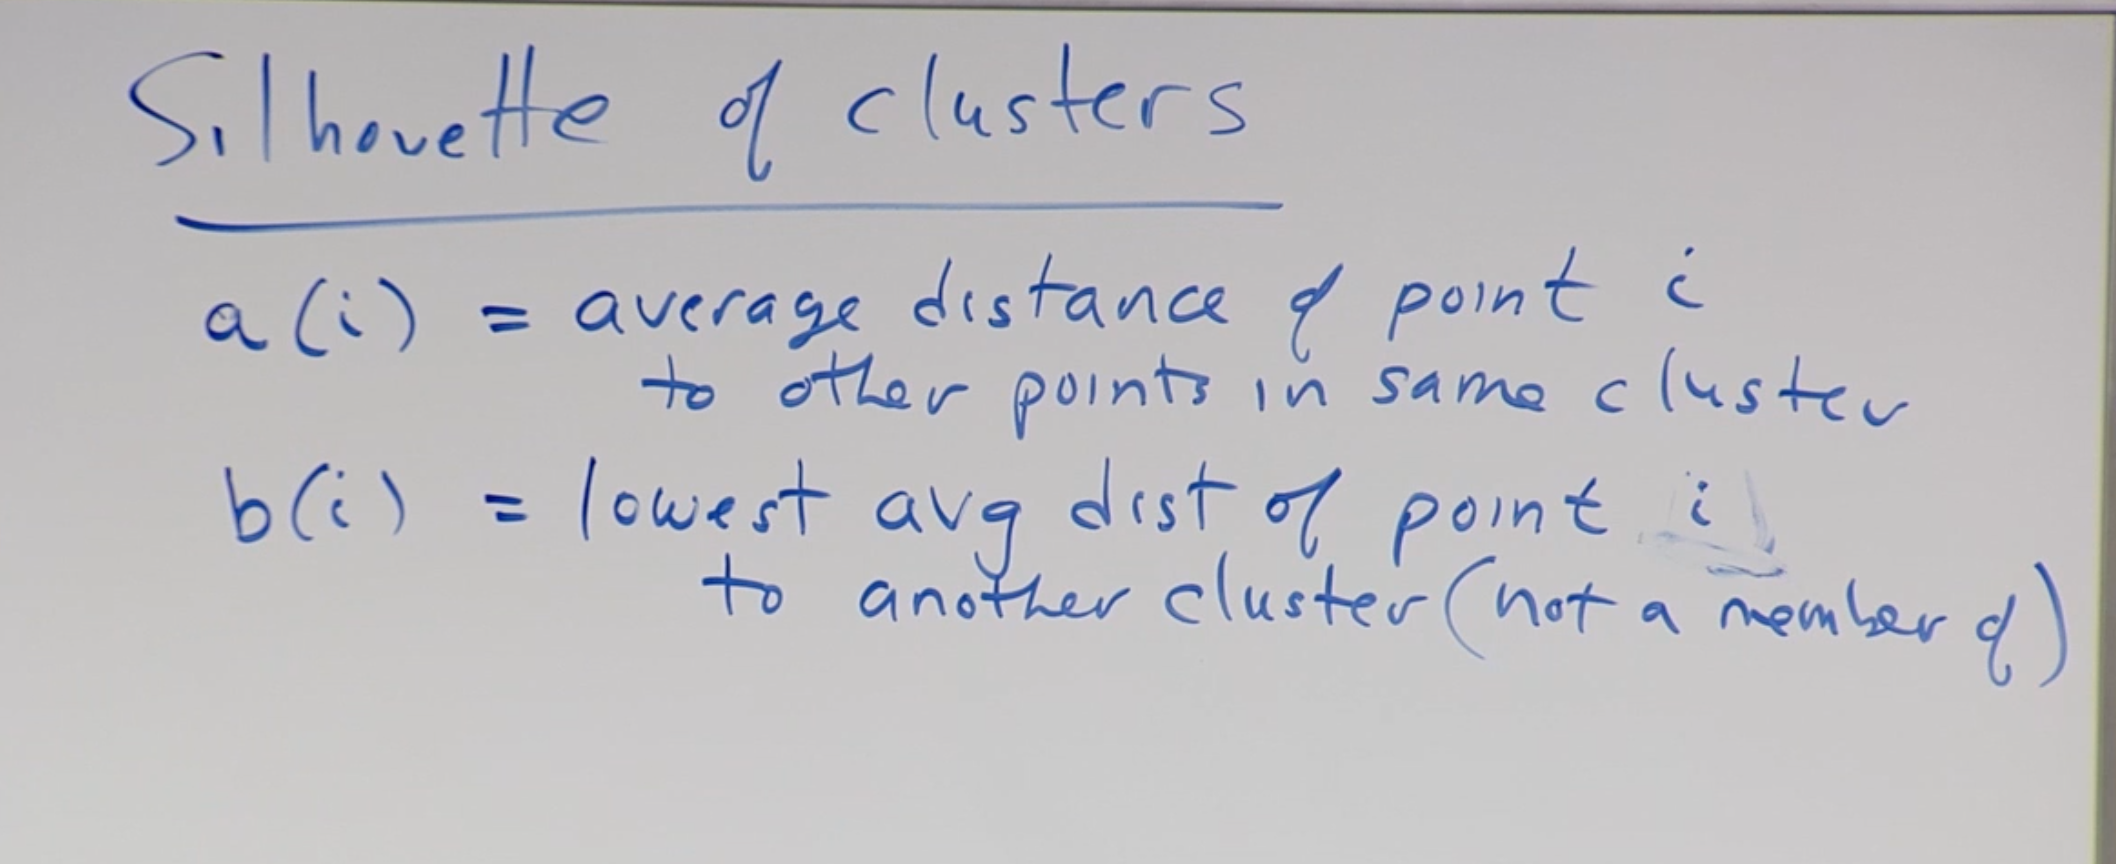 Silhouette of clusters
a(i) = average distance of point i
to other points in same cluster
b(i) = lowest avg dist of point i
to another cluster (not a member of)